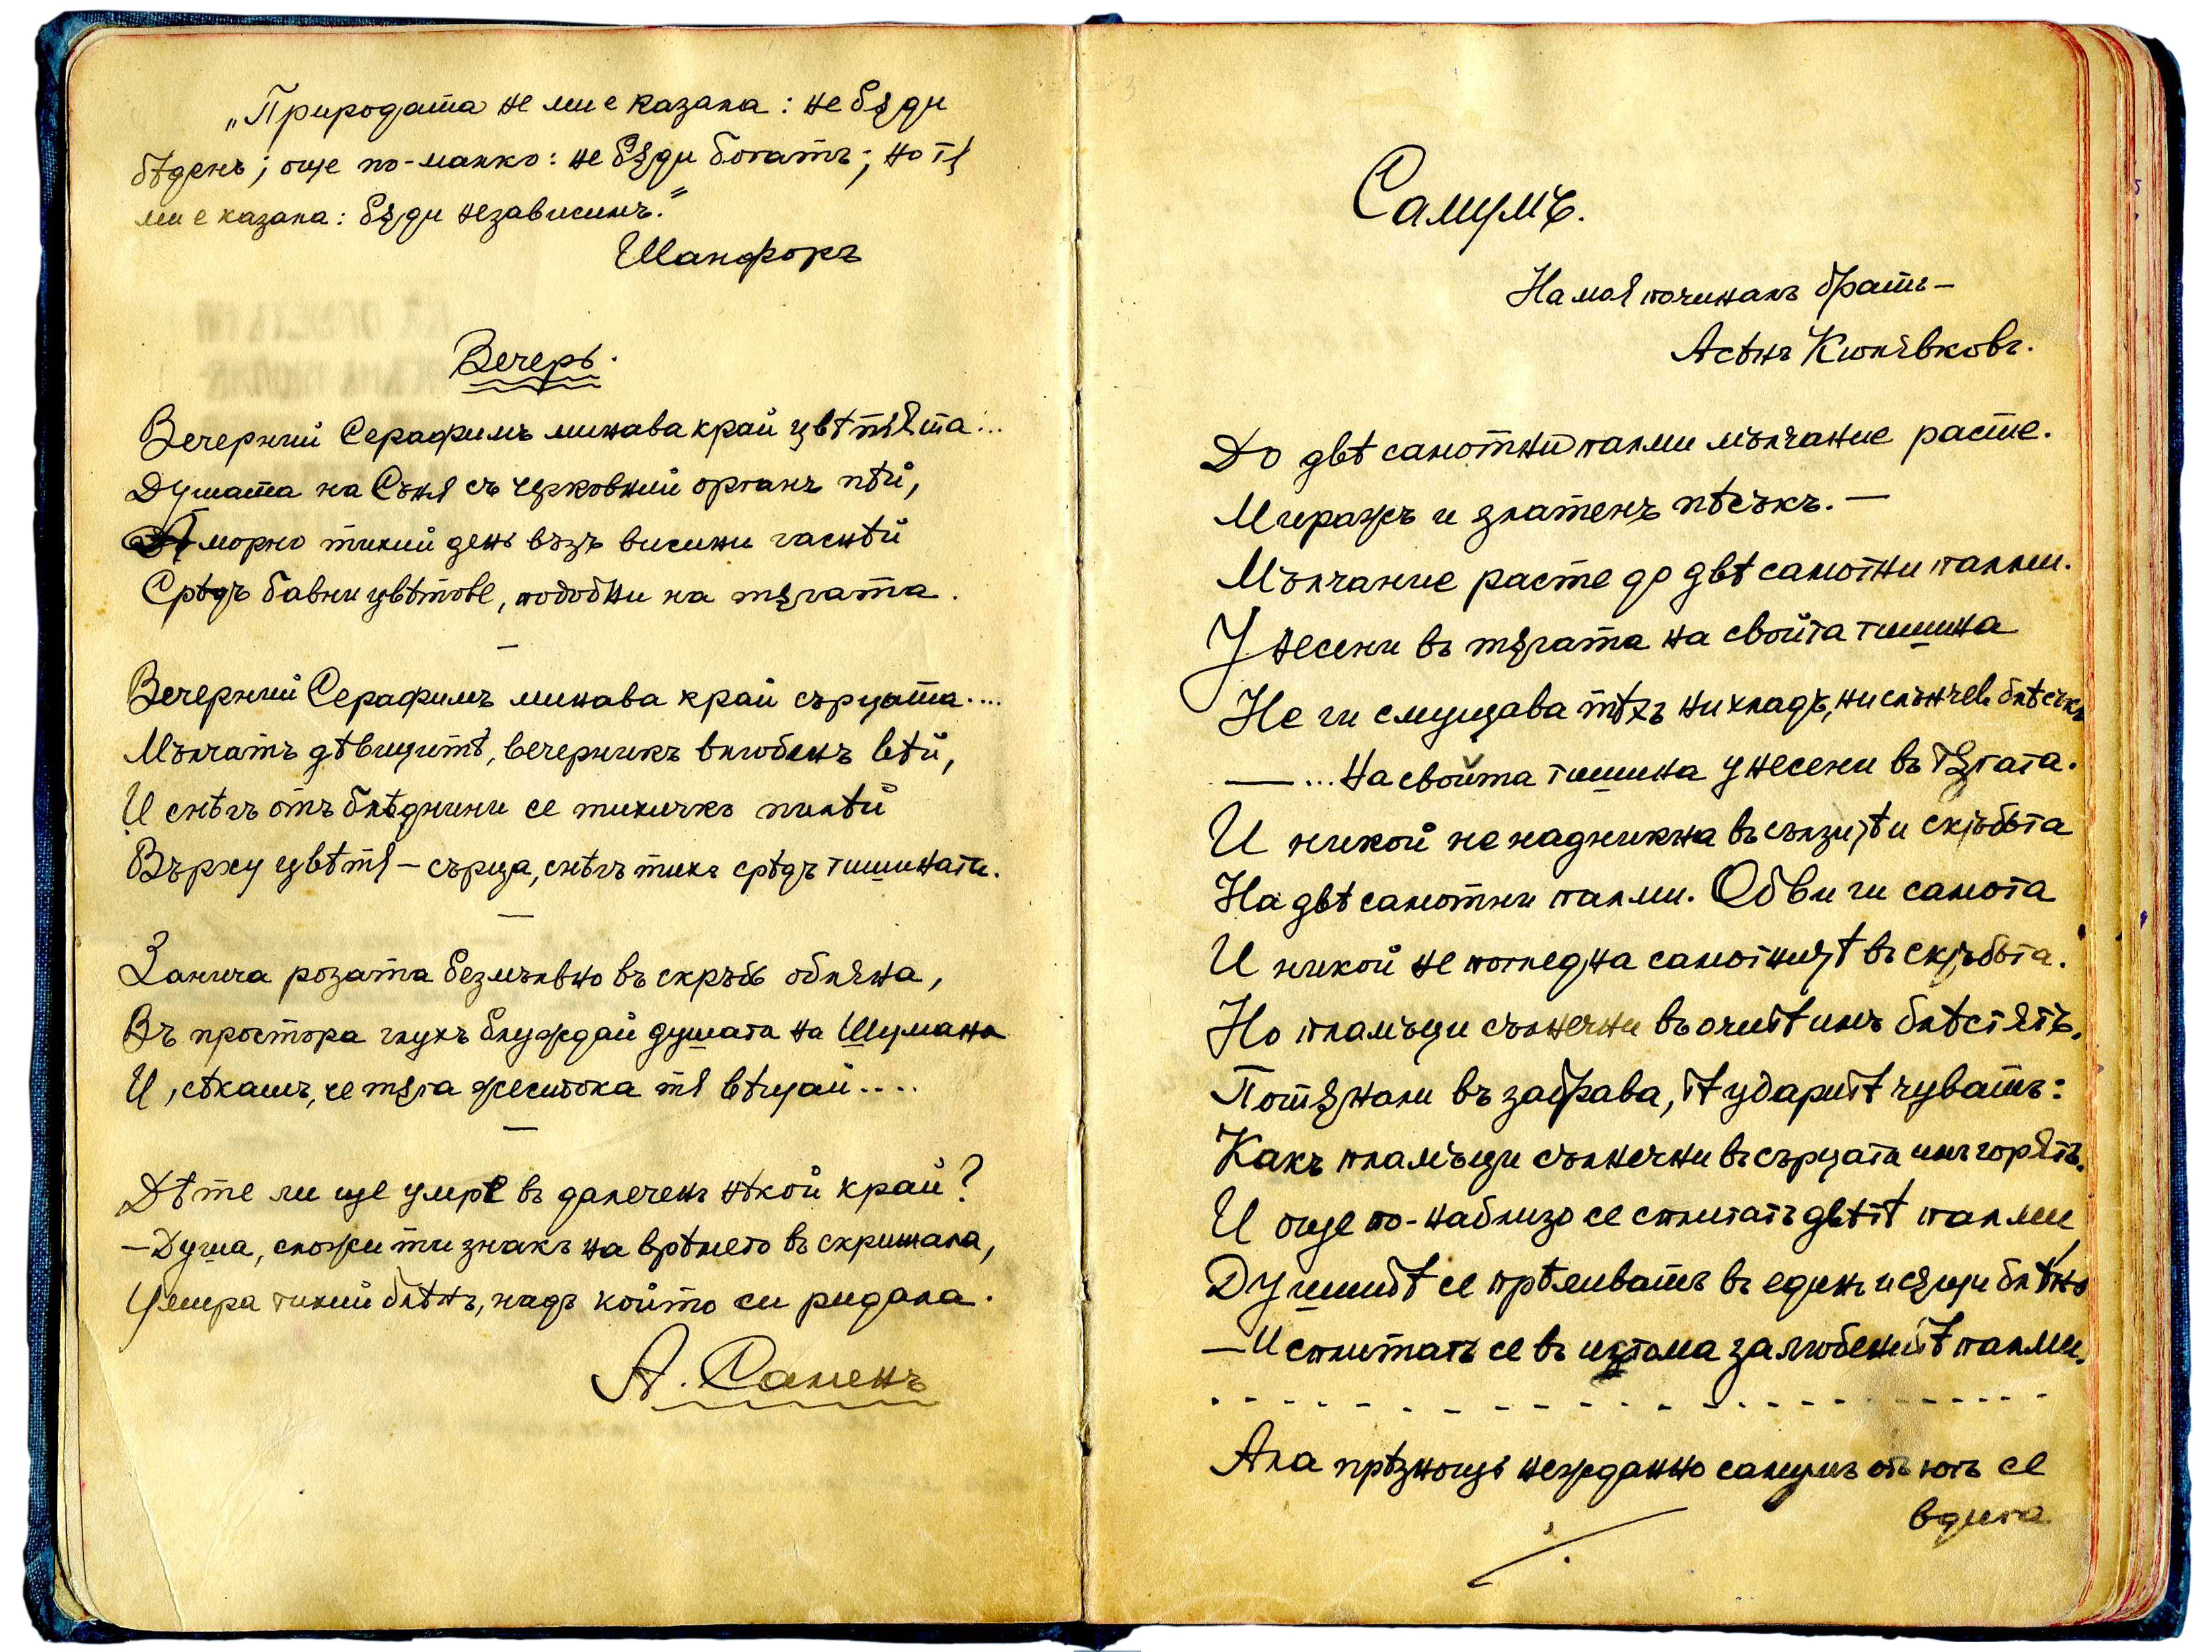 „Природата не ми е казала: не бѫди
бѣденъ; още по-малко: не бѫди богатъ; но тя
ми е казала: бѫди независимъ."
Шамфоръ
Вечерь.
Вечерний Серафимъ минава край цвѣтята...
Душата на Съня съ черковний органъ пѣй,
Аморно тихий день възъ висини гаснѣй
Срѣдъ бавни цвѣтове, подобни на тѫгата.
—
Вечерний Серафимъ минава край сърцата....
Мълчатъ дѣвицитѣ, вечерникъ влюбенъ вѣй,
И снѣгъ отъ блѣднини се тихичкъ пилѣй
Върху цвѣтя – сърца, снѣгъ тихъ срѣдъ тишината.
—
Занича розата безмълвно въ скръбь облѣна,
Въ простора глухъ блуждай душата на Шумана
И, сѣкашъ, че тѫга жестока тя вѣщай....
—
Дѣте ли ще умре въ далеченъ нѣкой край?
– Душа, сложи ти знакъ на врѣмето въ скрижала,
Умира тихий блѣнъ, надъ който си ридала.
А. Саменъ
Самумъ.
На моя починалъ братъ –
Асѣнъ Кюлявковъ.
До двѣ самотни палми мълчание расте.
Миражъ и златенъ пѣсъкъ. –
Мълчание расте до двѣ самотни палми.
Унесени въ тѫгата на свойта тишина
Не ги смущава тѣхъ ни хладъ, ни слънчевъ блѣсъкъ
— ... На свойта тишина унесени въ тѫгата.
И никой не надникна въ сълзитѣ и скръбьта
На двѣ самотни палми. Обви ги самота
И никой не погледна самотнитѣ въ скръбьта.
Но пламъци слънчени въ очитѣ имъ блѣстятъ.
Потѫнали въ забрава, тѣ ударитѣ чуватъ:
Какъ пламъци слънчени въ сърцата имъ горятъ.
И още по-наблизо се сплитатъ двѣтѣ палми
Душитѣ се прѣливатъ въ единъ исѫщи блѣнъ
— И сплитатъ се въ истома залюбенитѣ палми.
. - - - - - - - - - - - - - - - - - - - -
Ала прѣзнощь нежданно самумъ отъ югъ се
вдига
./.